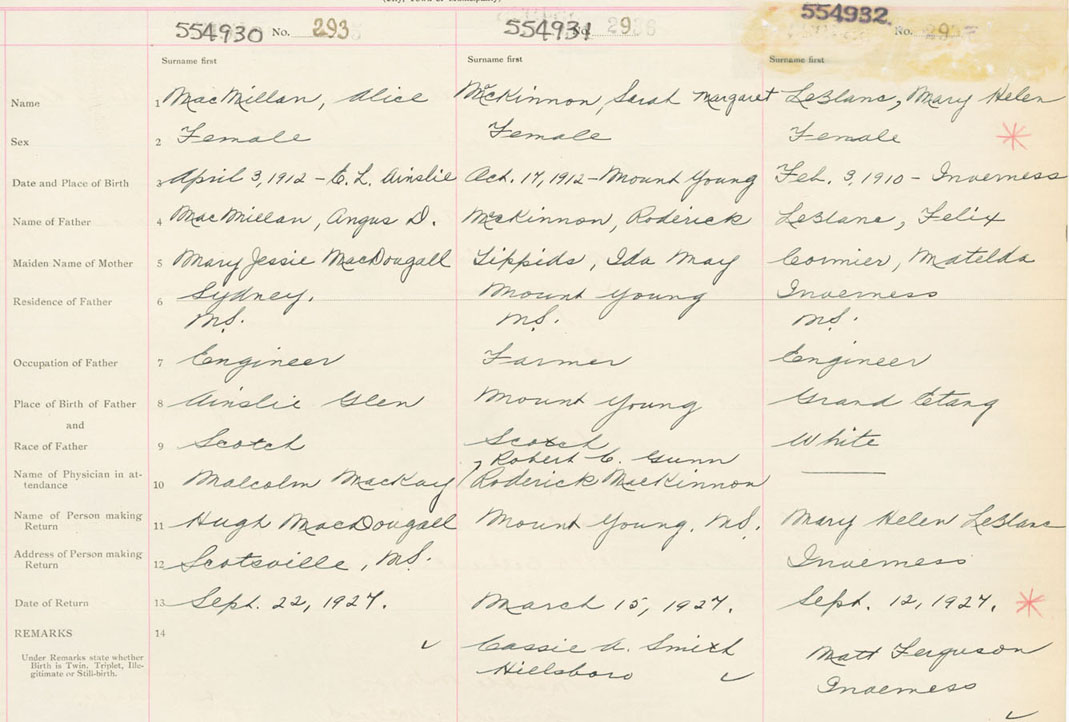 554930 No. 293
554931 No. 2936
554932 No. 2937
Surname first Surname first Surname first
Name 1 MacMillan, Alice McKinnon, Sarah Margaret LeBlanc, Mary Helen
Sex 2 Female Female Female
Date and Place of Birth 3 April 3, 1912 - E. L. Ainslie Oct. 17, 1912 - Mount Young Feb. 3, 1910 - Inverness
Name of Father 4 MacMillan, Angus D. McKinnon, Roderick LeBlanc, Felix
Maiden Name of Mother 5 Mary Jessie MacDougall Tippids, Ida May Cormier, Matelda
Residence of Father 6 Sydney. Mount Young Inverness
N.S. N.S. N.S.
Occupation of Father 7 Engineer Farmer Engineer
Place of Birth of Father 8 Ainslie Glen Mount Young Grand Etang
and
Race of Father 9 Scotch Scotch White
Robert C. Gunn
Name of Physician in at-
tendance 10 Malcolm MacKay Roderick MacKinnon
Name of Person making
Return 11 Hugh MacDougall Mount Young, N.S. Mary Helen LeBlanc
Address of Person making
Return 12 Scotsville, N.S. Inverness
Date of Return 13 Sept. 22, 1927. March 15, 1927. Sept. 12, 1927.
REMARKS 14
Under Remarks state whether
Birth is Twin, Triplet, Ille-
gitimate or Still-birth.
Cassie A. Smith Matt Ferguson
Hillsboro Inverness